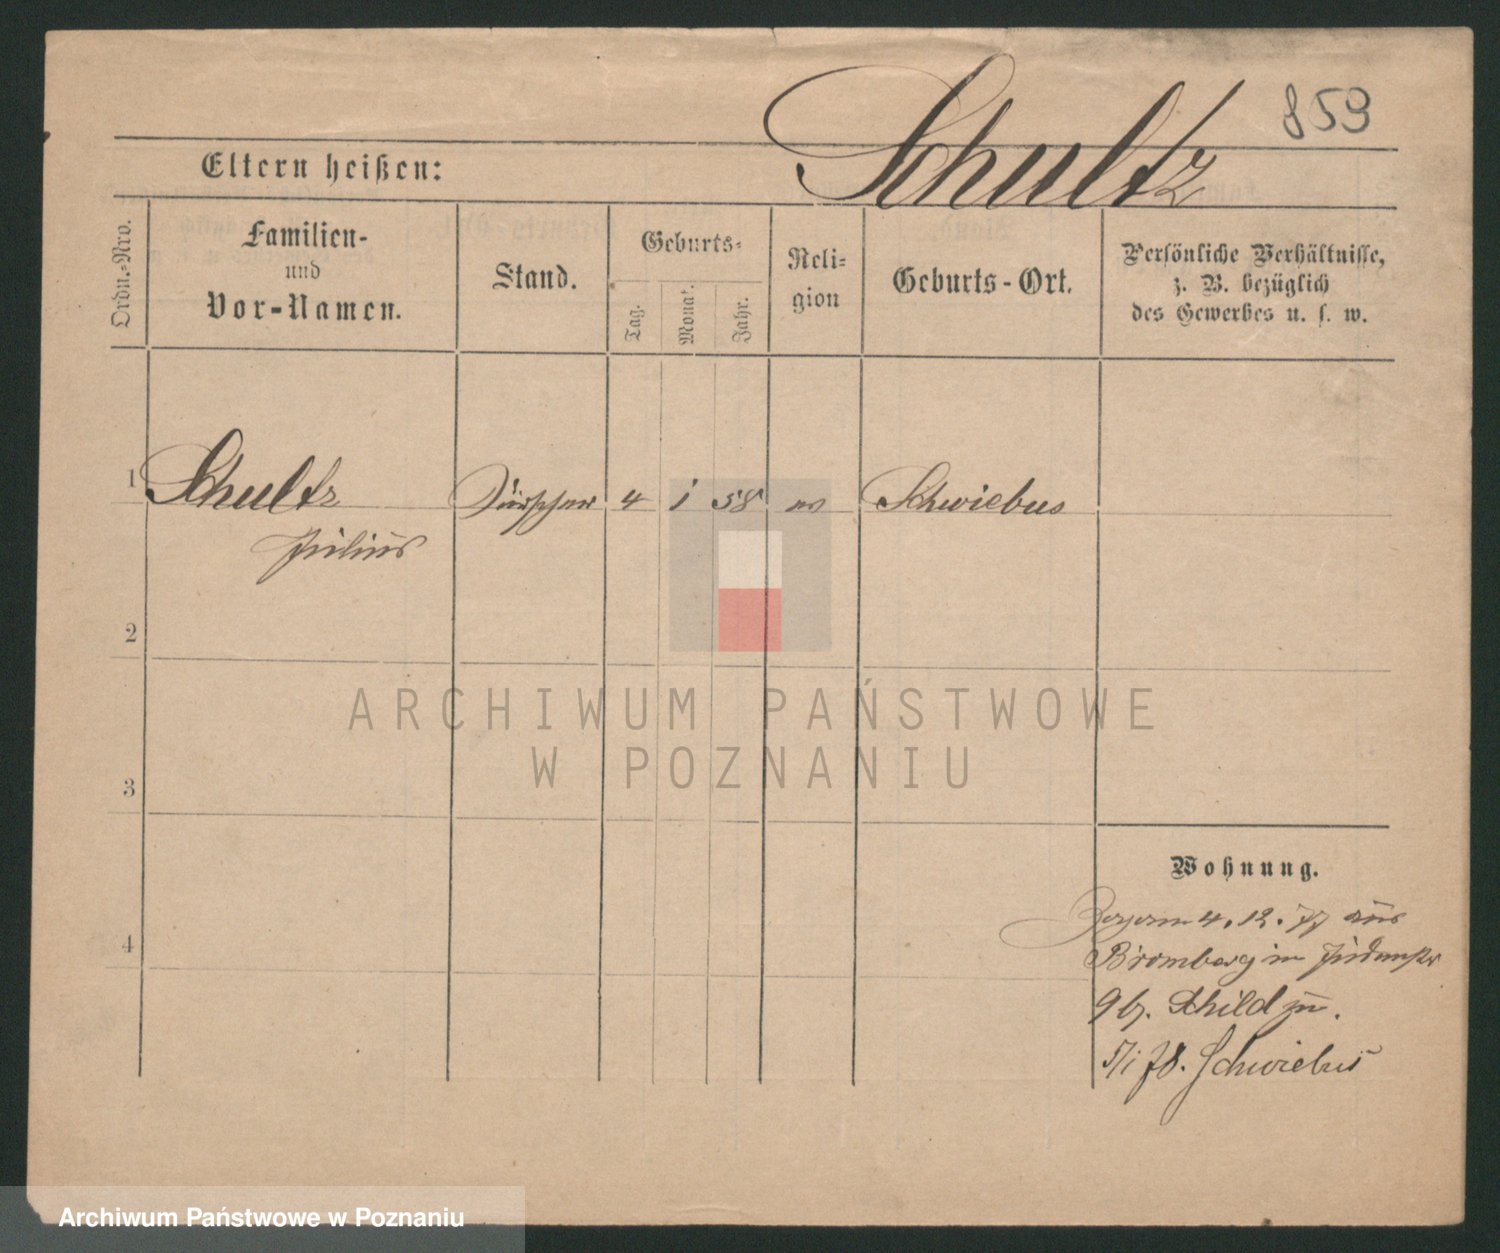 859
Schultz
Eltern heißen:
Ordn.-Nro.
Familien-
und
Vor-Namen.
Stand.
Geburts-
Tag.
Monat.
Jahr.
Reli-
gion
Geburts-Ort.
Persönliche Verhältnisse,
z. B. bezüglich
des Gewerbes u. s. w.
1 Schultz 4 1 58 Schwiebus
Julius
2
3
4
ARCHIWUM PAŃSTWOWE
W POZNANIU
Wohnung.
4. 12. 77 aus
Bromberg in
9 b. Schild zu.
5/1 78. Schwiebus
Archiwum Państwowe w Poznaniu